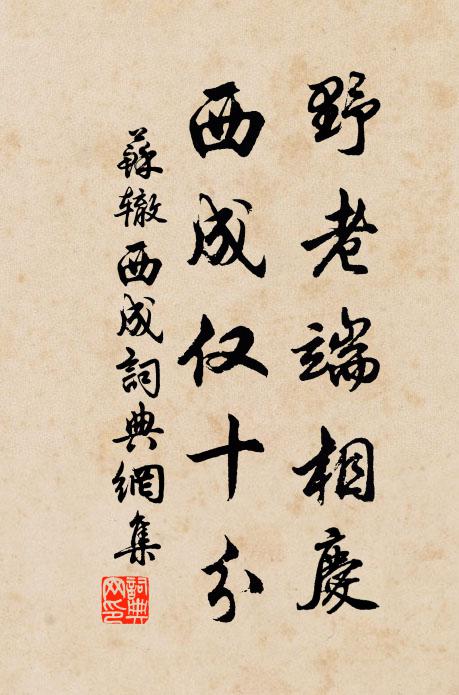 野老端相慶
西成仅十分
蘇辙西成詞典網集
詞典
网印